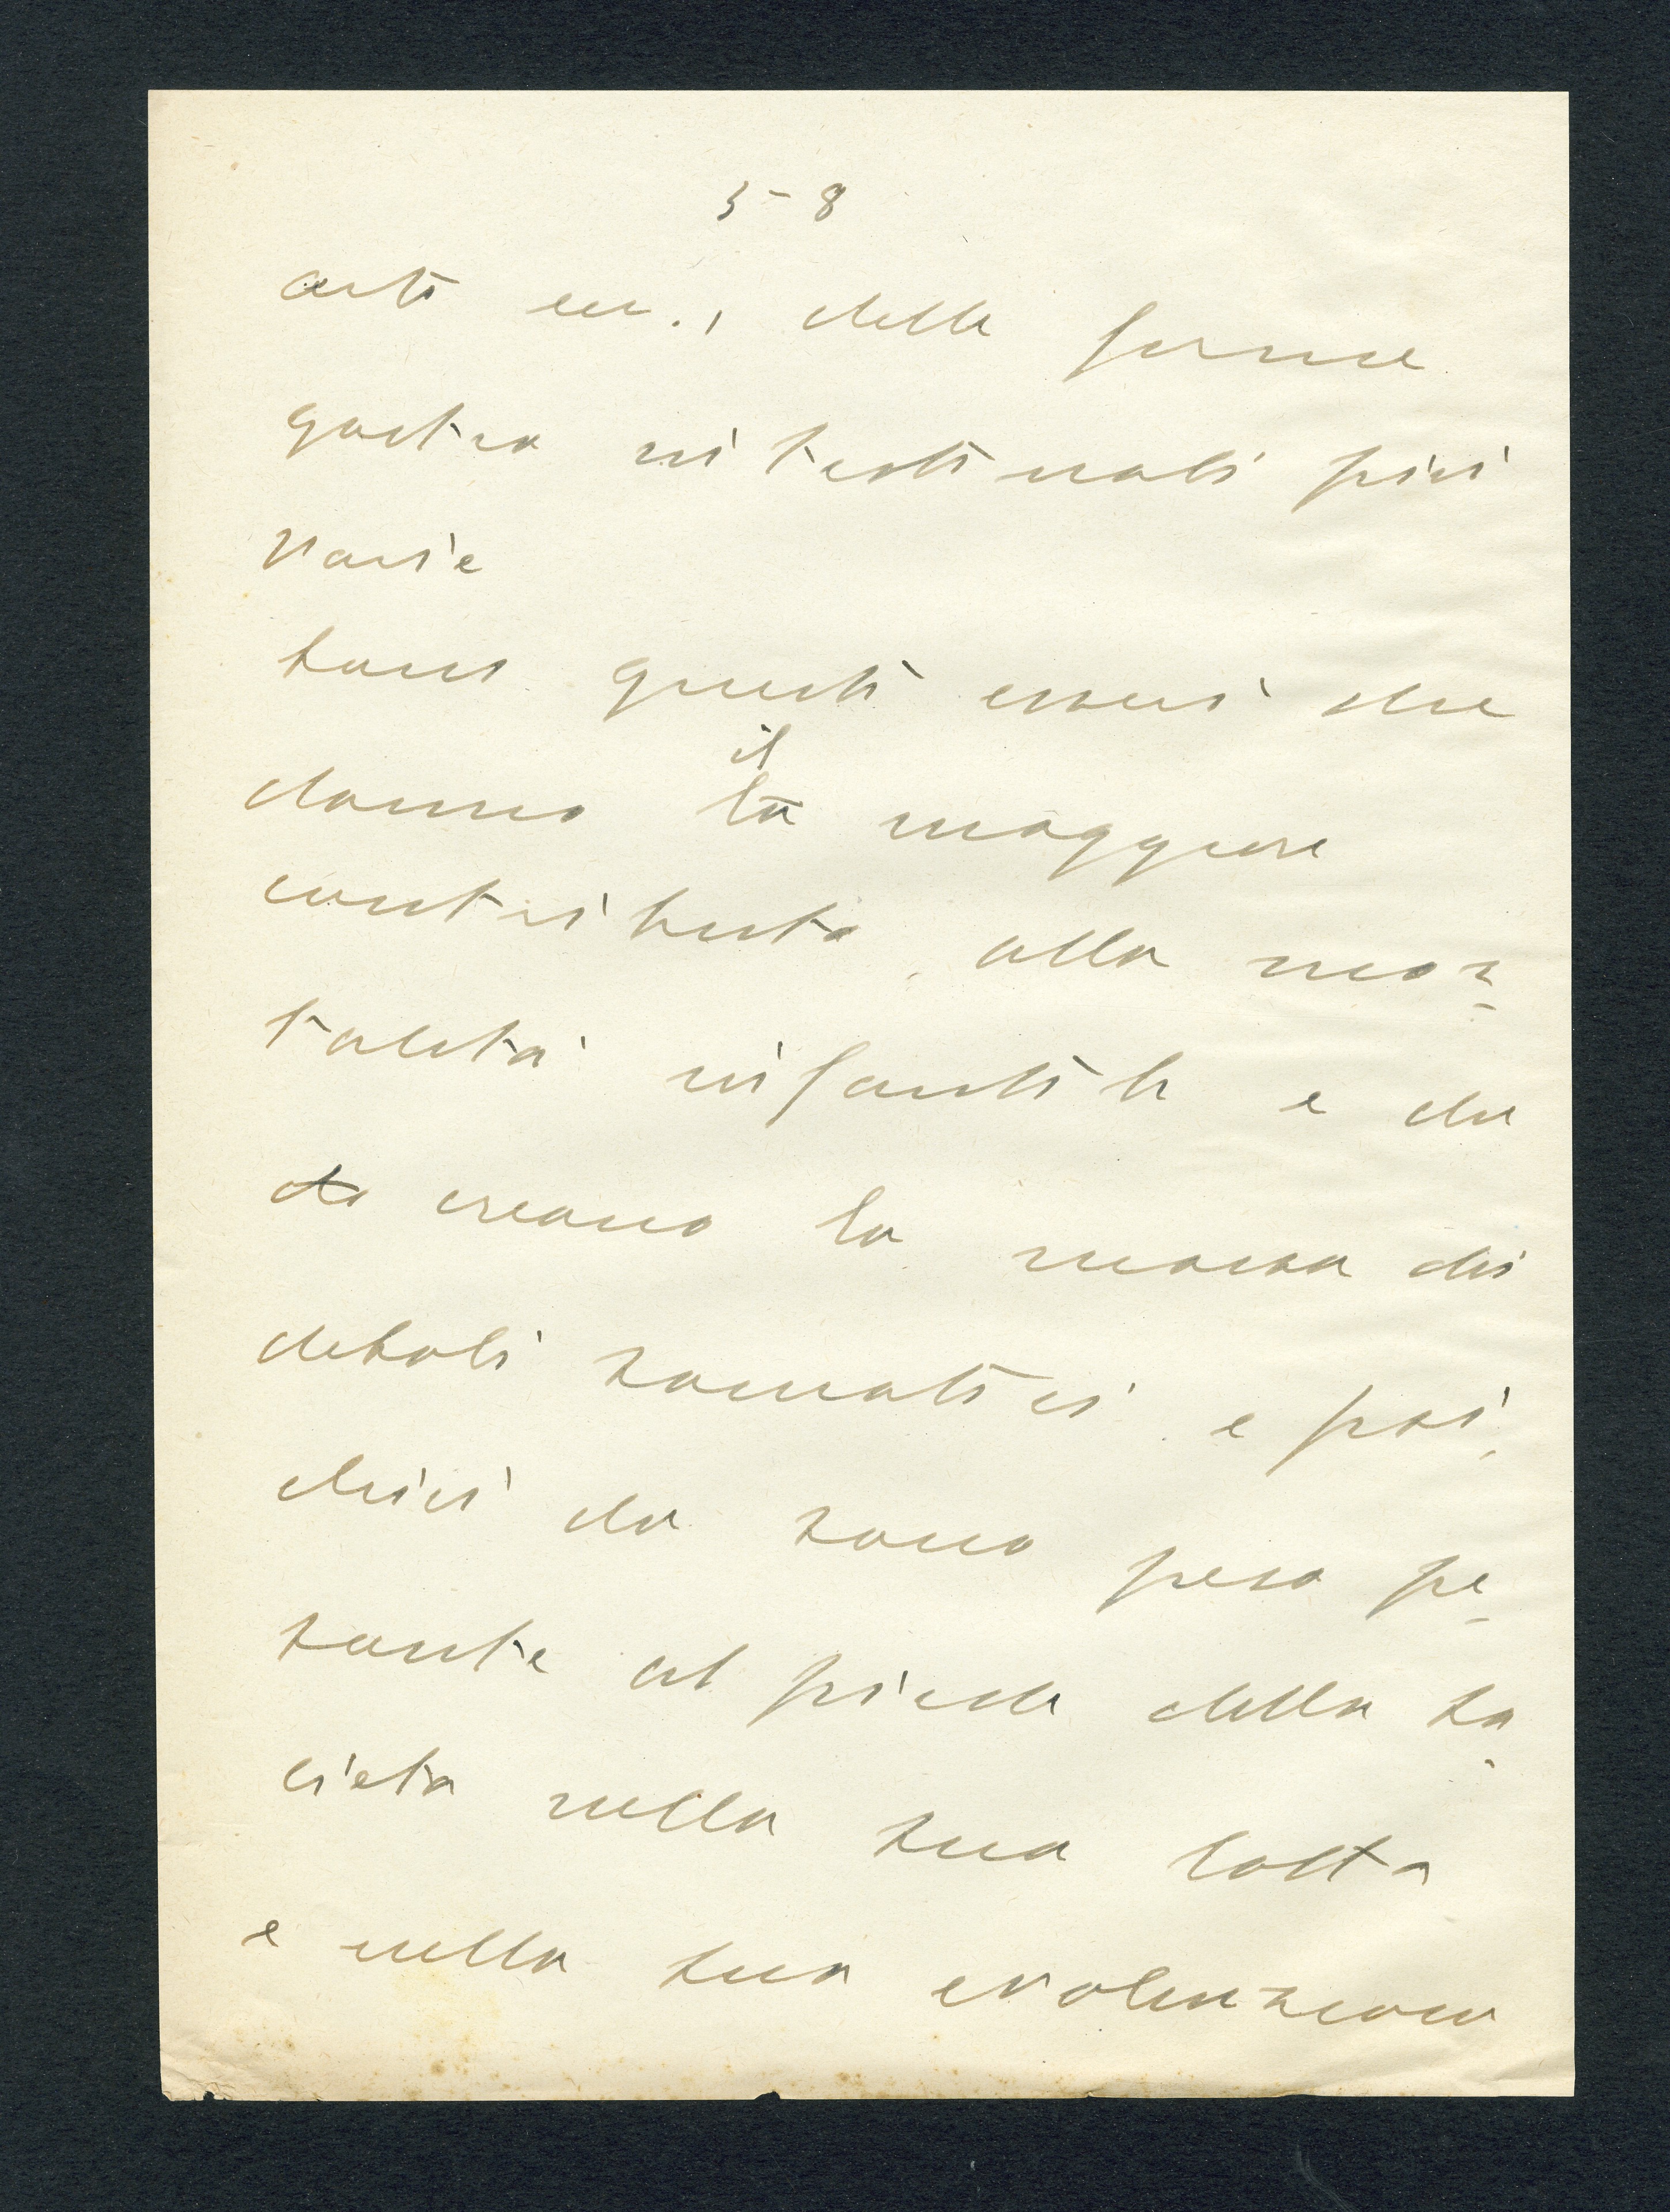 5-8
arti ecc., delle forme
gastro intestinali più
varie
sono questi esseri che
il
danno la maggiore
contributo alla mor=
talità infantile e che
creano la massa dei
deboli somatici e psi,
chici che sono peso pe-
sante al piede della so-
cieta nella sua lotta
e nella sua evoluzione